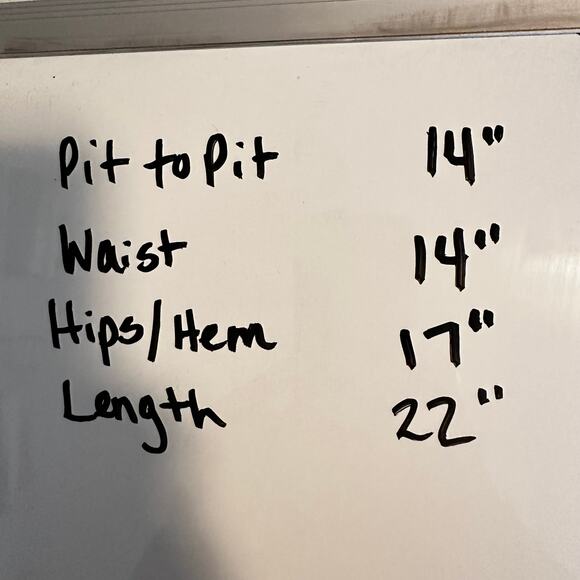 Pit to Pit 14"
Waist 14"
Hips/Hem 17"
Length 22"